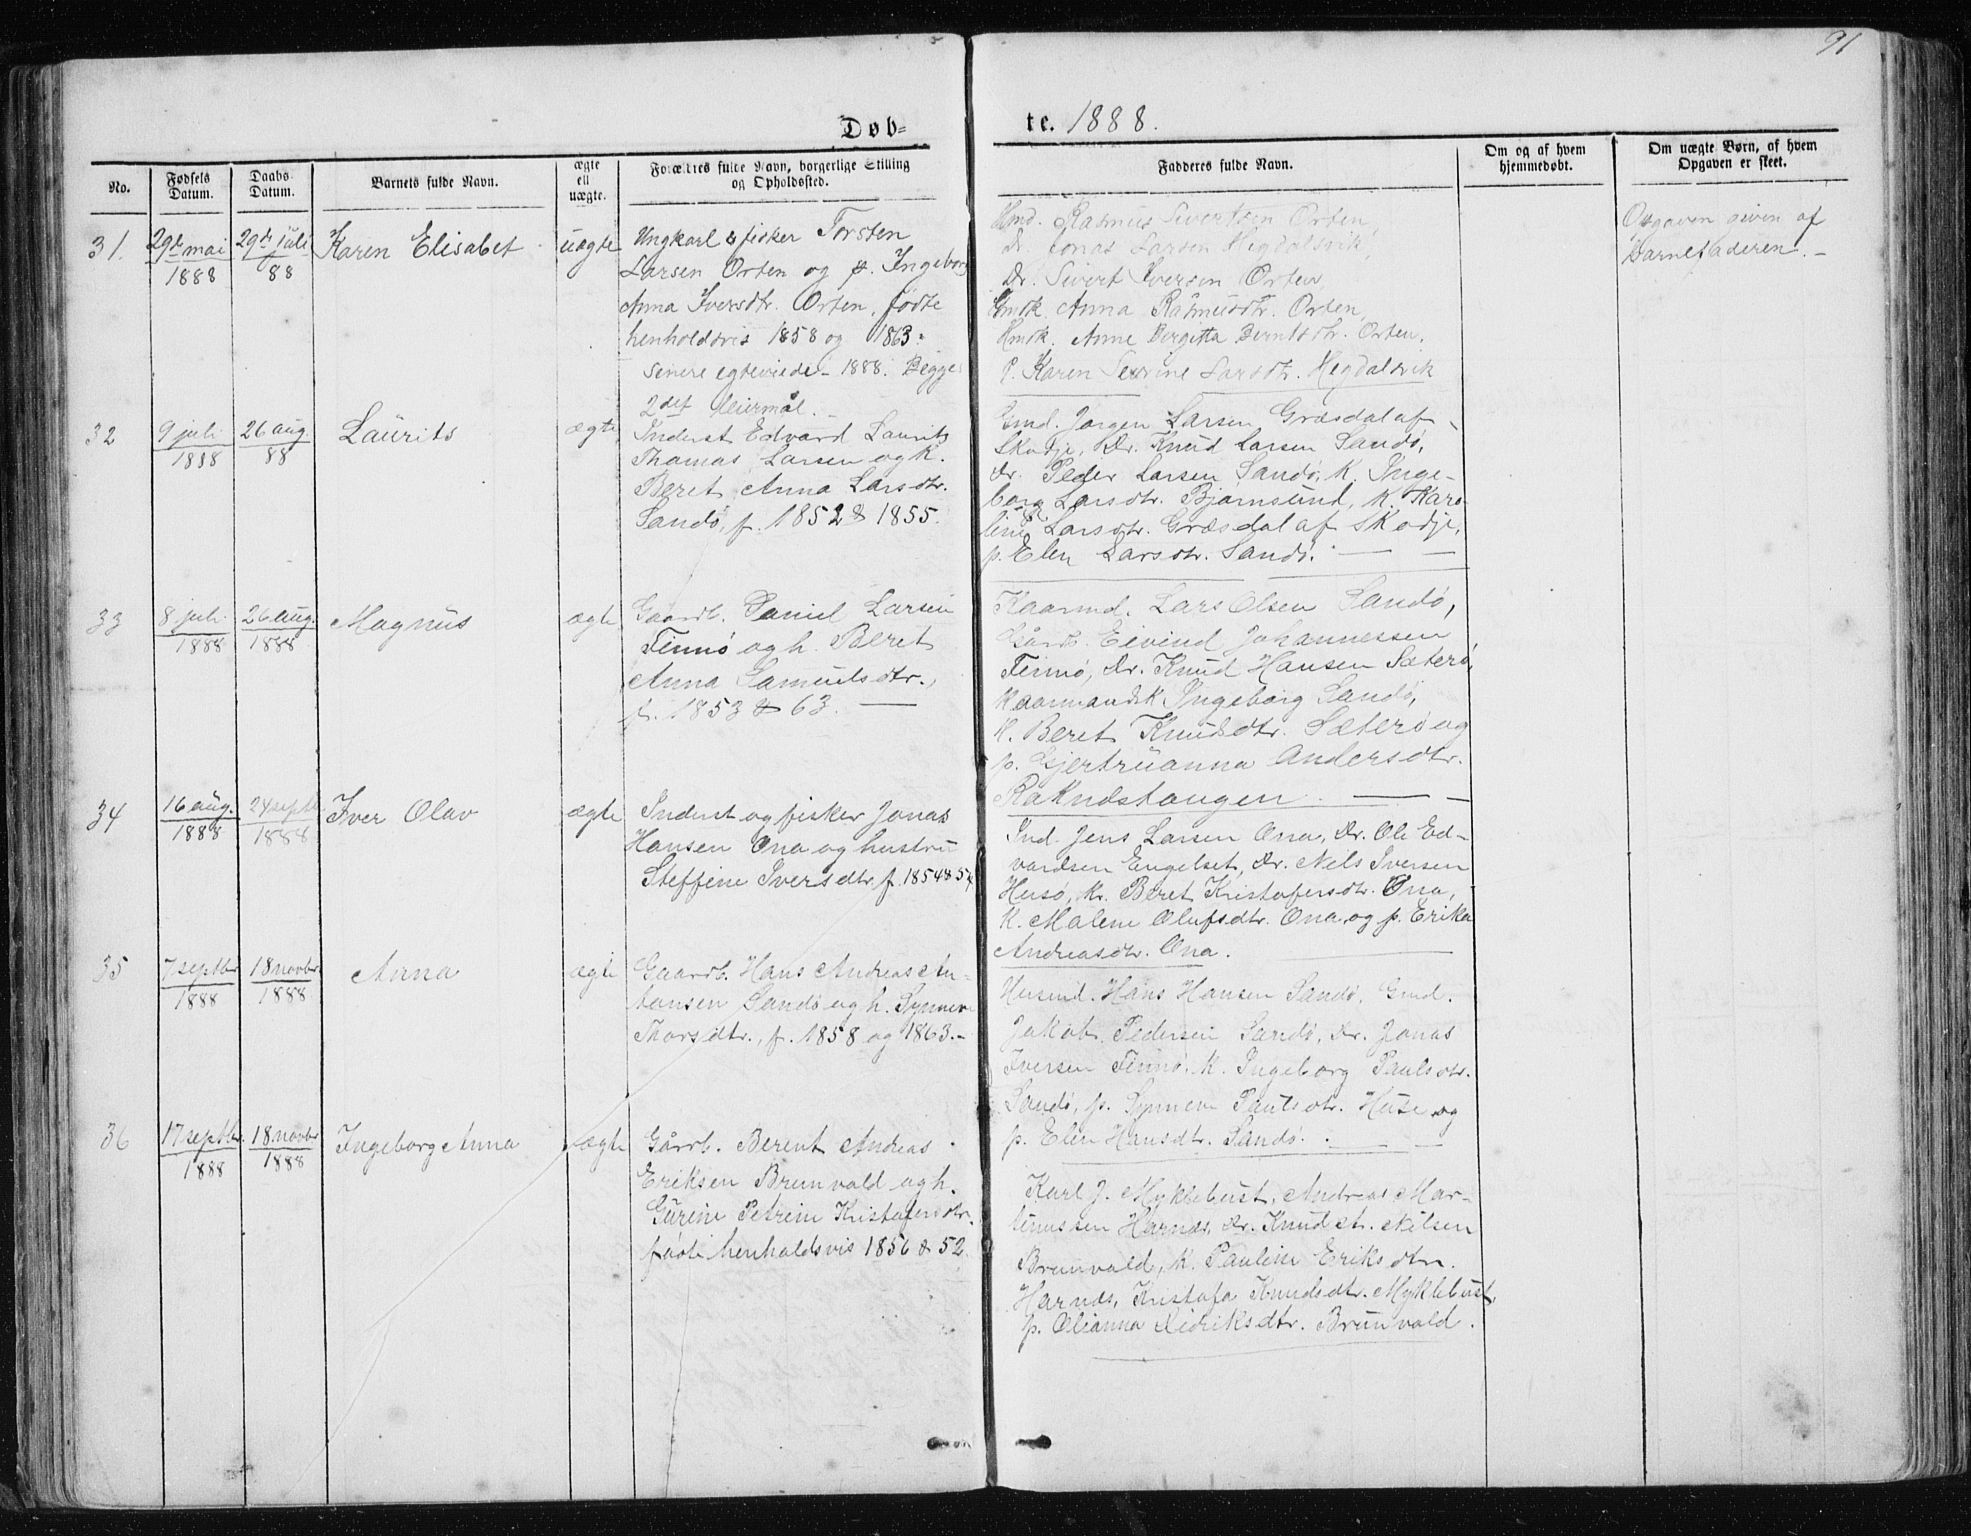 91
Døb=
te. 1888.
No.
Fødsels Datum.
Daabs Datum.
Barnets fulde Navn.
ægte ell uægte.
Forældres fulde Navn, borgerlige Stilling og Opholdssted.
Fadderes fulde Navn.
Om og af hvem hjemmedøbt.
Om uægte Børn, af hvem Opgaven er skeet.
31.
29de mai 1888
29de juli 88
Karen Elisabet
uægte
Ungkarl & fisker Torsten
Larsen Orten og p. Ingeborg
Anna Iversdtr. Orten, fødte
henholdsvis 1858 og 1863.
Senere egteviede 1888. Begges
2det leiermål.
Gmd. Rasmus Sivertsen Orten,
Dr. Jonas Larsen Hegdalsvik,
Dr. Sivert Iversen Orten,
Gmdk. Anna Rasmusdtr. Orten,
Hmdk. Anne Bergitta Berntsdtr. Orten,
P. Karen Severine Larsdtr. Hegdalsvik
Opgaven given af
Barnefaderen. -
32
9 juli 1888
26 aug 88
Laurits
ægte
Inderst Edvard Laurits
Thomas Larsen og k.
Beret Anna Larsdtr.
Sandø, f. 1852 & 1855.
Gmd. Jørgen Larsen Græsdal af
Skodje, Dr. Knud Larsen Sandø,
Dr. Peder Larsen Sandø, K. Inge-
borg Larsdtr. Bjørnsund, K. Karo-
line Larsdtr. Græsdal af Skodje,
p. Elen Larsdtr. Sandø.
33
8 juli 1888
26 aug. 1888
Magnus
ægte
Gaardb. Daniel Larsen
Finnø og h. Beret
Anna Samuelsdtr.,
f. 1853 & 63.
Kaarmd. Lars Olsen Sandø,
Gårdb. Eivind Johannessen
Finnø, Dr. Knud Hansen Sæterø,
Kaarmandsk Ingeborg Sandø,
K. Beret Knudsdtr. Sæterø og
p. Gjertruanna Andersdtr.
Rakndstangen.
34
16 aug. 1888
24 septb 1888
Iver Olav
ægte
Inderst og fisker Jonas
Hansen Ona og hustru
Steffine Iversdtr. f. 1854 & 54
Ind. Jens Larsen Ona, Dr. Ole Ed-
vardsen Engelset, Dr. Nils Iversen
Husø, K. Beret Kristofersdtr. Ona,
K. Malene Olufsdtr. Ona og p. Erika
Andreasdtr. Ona.
35
7 septbr 1888
18 novbr 1888
Anna
ægte
Gaardb. Hans Andreas An-
tonsen Sandø og h. Synneve
Thorsdtr., f. 1858 og 1863.-
Husmd. Hans Hansen Sandø, Gmd.
Jakob Pedersen Sandø, Dr. Jonas
Iversen Finnø, K. Ingeborg Paulsdtr.
Sandø, p. Synneve Paulsdtr. Huse og
p. Elen Hansdtr. Sandø.
36
17 septbr. 1888
18 novbr 1888
Ingeborg Anna
ægte
Gårdb. Berent Andreas
Eriksen Brunvold og h.
Gurine Petrine Kristofersdtr.
fødte henholdsvis 1856 & 52.
Karl J. Myklebust, Andreas Mar-
tinussen Harnæs, Dr. Knud St. Nilsen
Brunvold, K. Pauline Eriksdtr.
Harnæs, Kristofa Knudsdtr. Myklebust,
p. Olianna Didriksdtr. Brunvold.